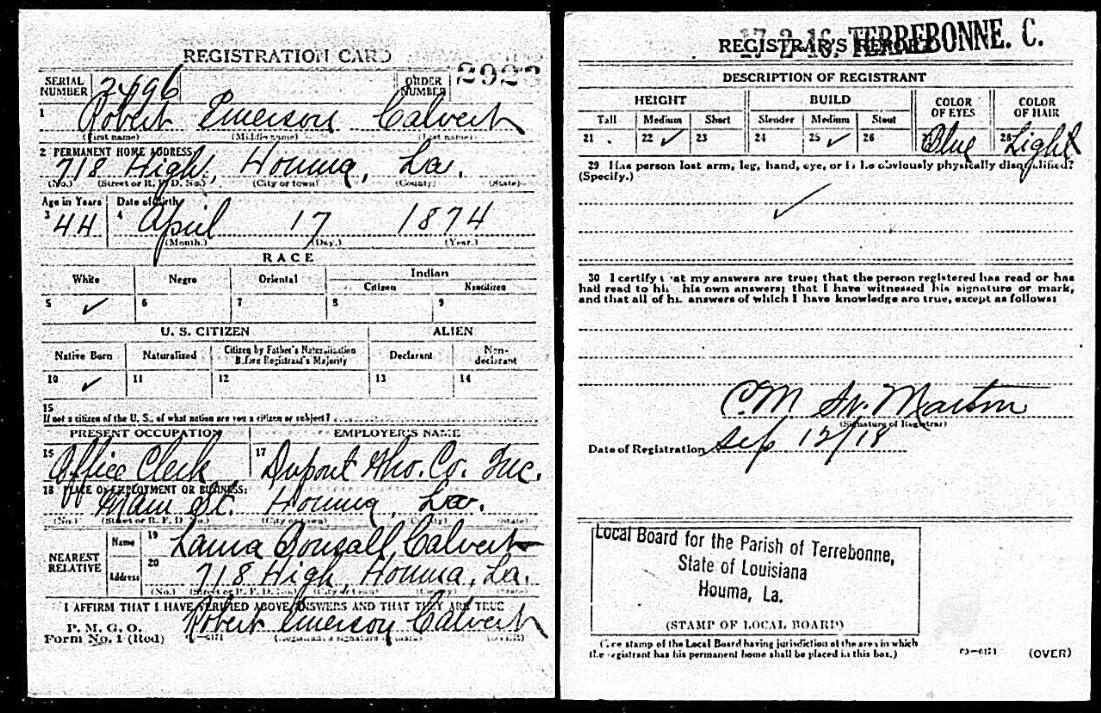 REGISTRATION CARD
SERIAL NUMBER 2496 ORDER NUMBER 2923
1 Robert Emerson Calvert
(First name) (Middle name) (Last name)
2 PERMANENT HOME ADDRESS:
718 High, Houma, La.
(No.) (Street or R. F. D. No.) (City or town) (County) (State)
Age in Years Date of Birth
3 44 4 April 17 1874
(Month.) (Day.) (Year.)
RACE
White Negro Oriental Indian
Citizen Noncitizen
5 ✓ 6 7 8 9
U. S. CITIZEN ALIEN
Native Born Naturalized Citizen by Father's Naturalization Before Registrant's Majority Declarant Non-declarant
10 ✓ 11 12 13 14
15
If not a citizen of the U. S., of what nation are you a citizen or subject?
PRESENT OCCUPATION EMPLOYER'S NAME
16 Office Clerk 17 Dupont Co. Inc.
18 PLACE OF EMPLOYMENT OR BUSINESS:
Main St. Houma, La.
(No.) (Street or R. F. D. No.) (City or town) (County) (State)
NEAREST RELATIVE Name 19 Laura Bonsall Calvert
Address 20 718 High, Houma, La.
(No.) (Street or R. F. D. No.) (City or town) (County) (State)
I AFFIRM THAT I HAVE VERIFIED ABOVE ANSWERS AND THAT THEY ARE TRUE
P. M. G. O.
Form No. 1 (Red) Robert Emerson Calvert
(Registrant's signature or mark) (OVER)
REGISTRAR'S REPORT TERREBONNE. C.
DESCRIPTION OF REGISTRANT
HEIGHT BUILD COLOR OF EYES COLOR OF HAIR
Tall Medium Short Slender Medium Stout
21 22 ✓ 23 24 25 ✓ 26 27 Blue 28 Light
29 Has person lost arm, leg, hand, eye, or is he obviously physically disqualified?
(Specify.)
✓
30 I certify that my answers are true; that the person registered has read or has
had read to him his own answers; that I have witnessed his signature or mark,
and that all of his answers of which I have knowledge are true, except as follows:
C. M. Martin
(Signature of Registrar)
Date of Registration Sep 12/18
Local Board for the Parish of Terrebonne,
State of Louisiana
Houma, La.
(STAMP OF LOCAL BOARD)
(The stamp of the Local Board having jurisdiction of the area in which
the registrant has his permanent home shall be placed in this box.)
03—6171 (OVER)